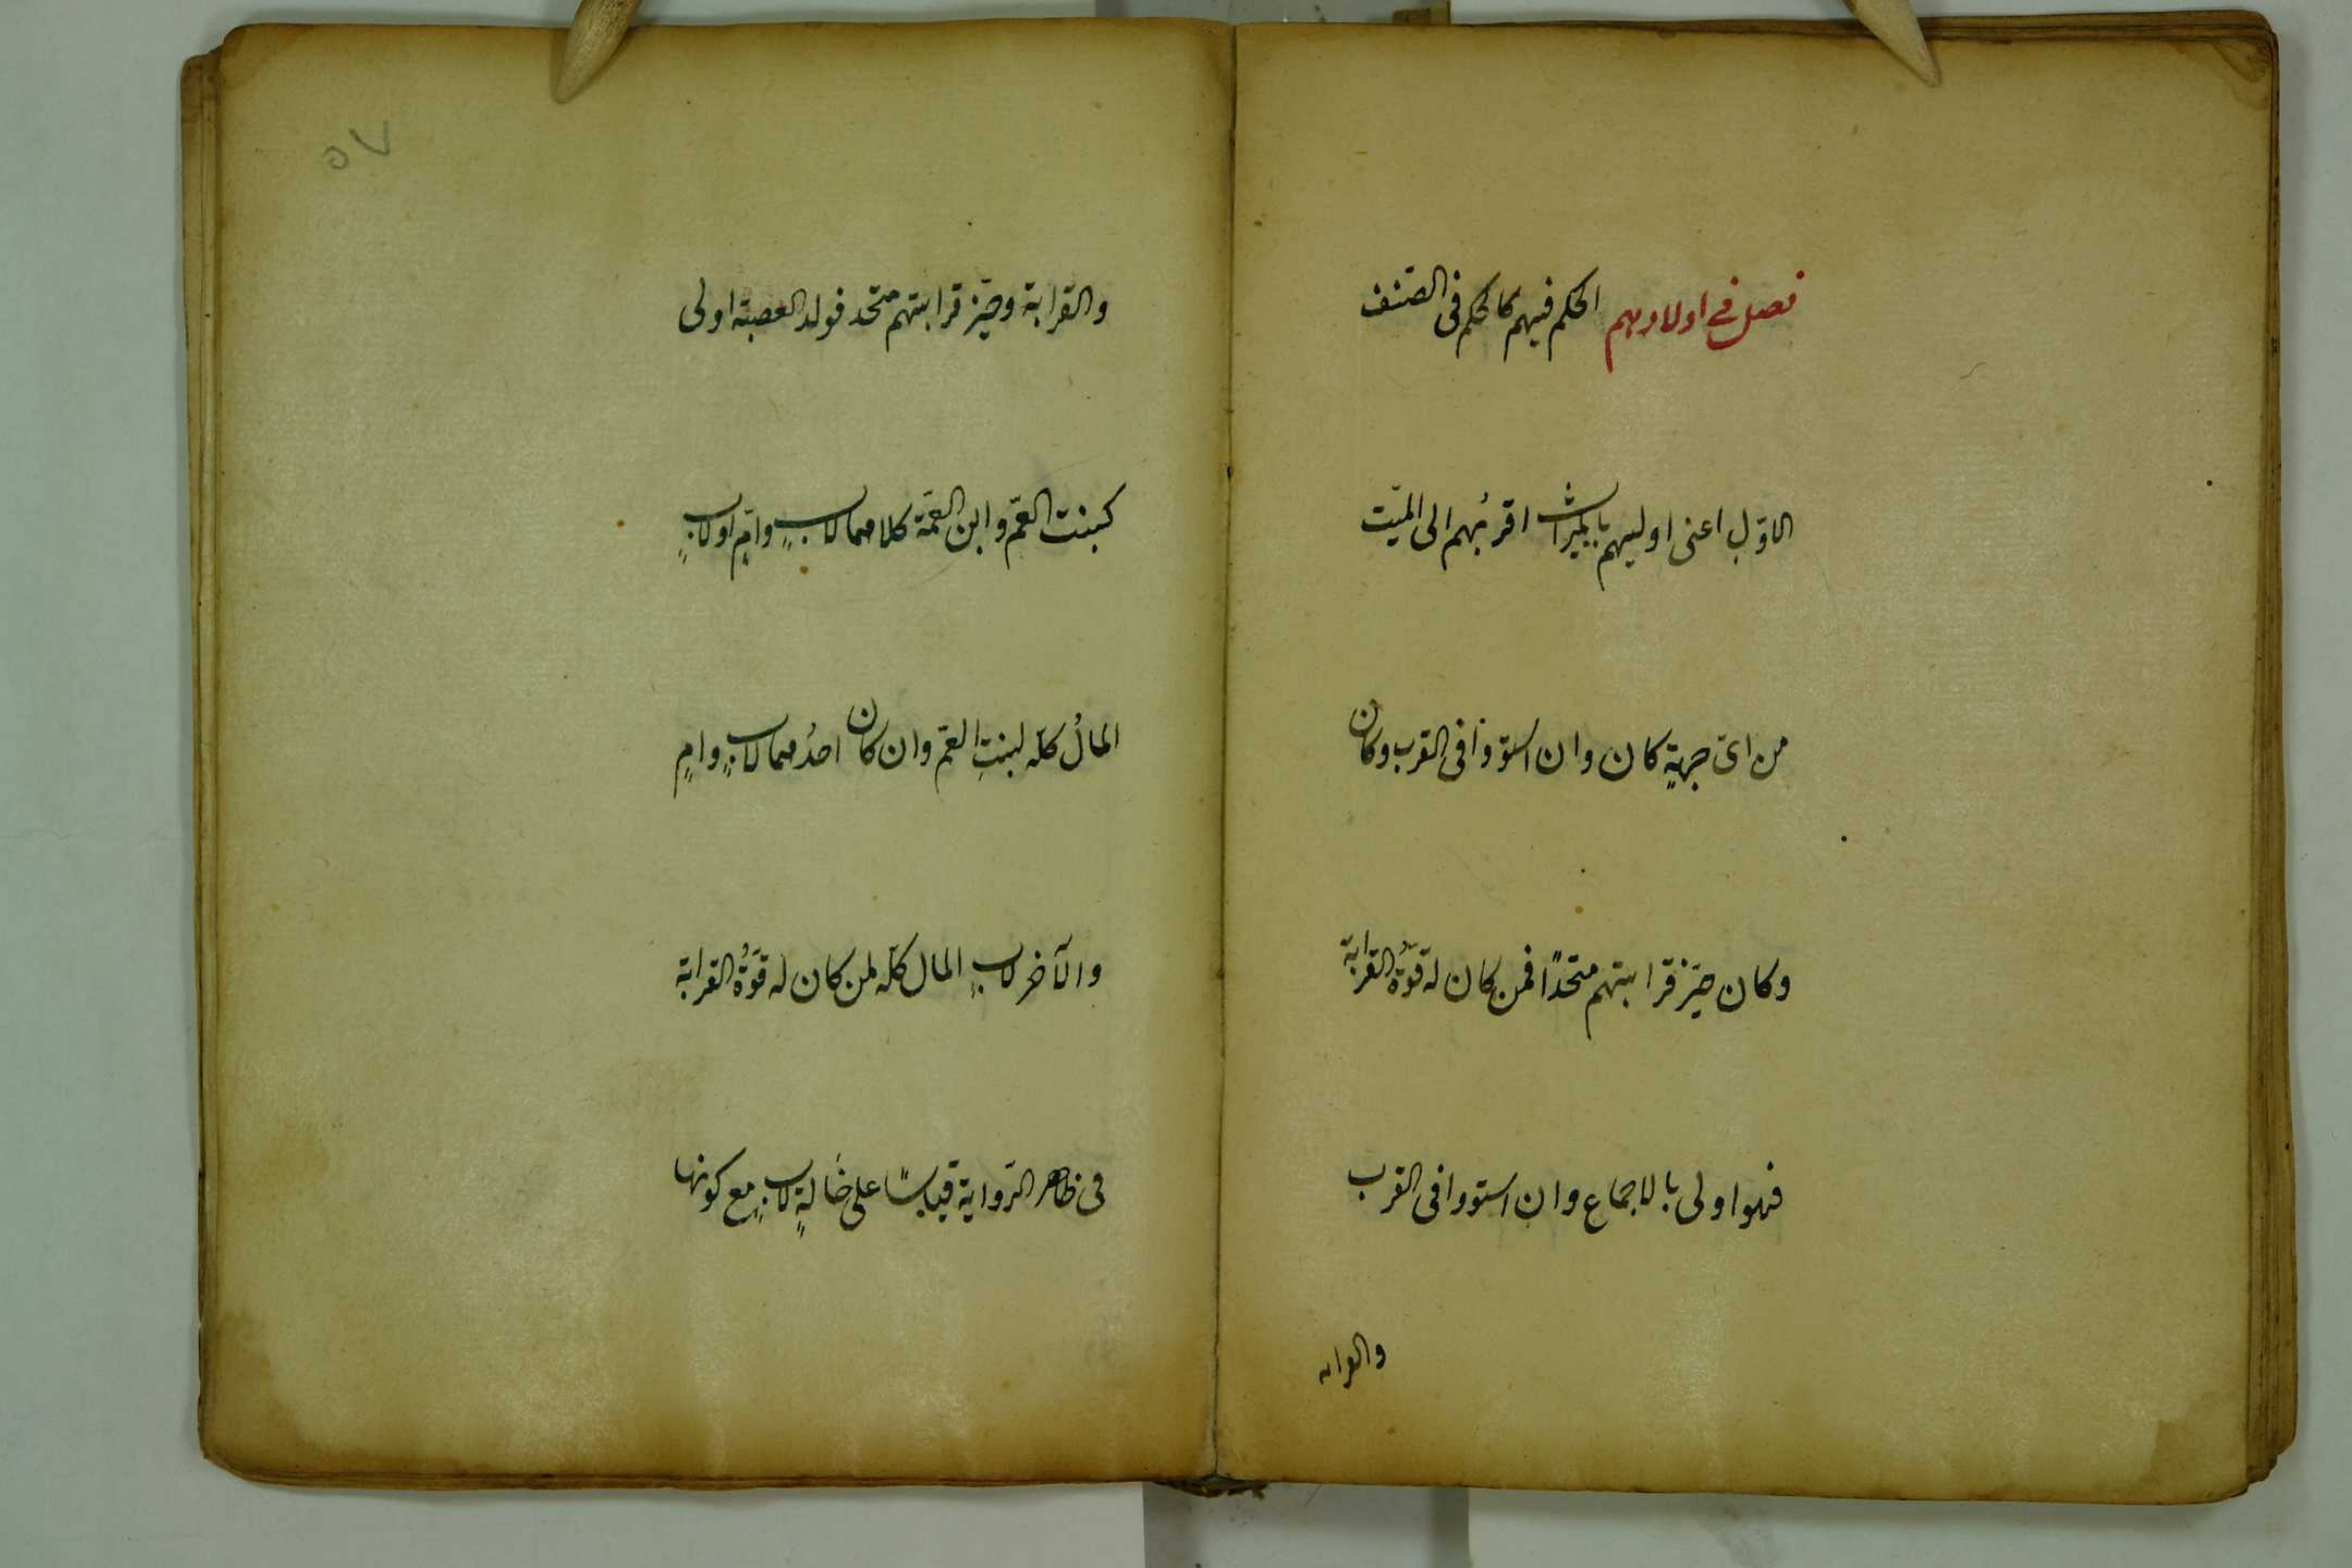 فصل فى اولادهم الحكم فيهم كالحكم فى الصّنف
الاوّل اعنى اوليهم بالميراث اقربُهم الى الميّت
من اىّ جهةٍ كان وان استووا فى القرب وكان
وكان حيّز قرابتهم متّحدًا فمن كان له قوّةُ القرابة
فهو اولى بالاجماع وان استووا فى القرب
والقرابة
٥٧
والقرابة وحيّز قرابتهم متّحد فولد العصبة اولى
كبنت العمّ وابن العمّة كلاهما لابٍ وامٍّ او لابٍ
المالُ كلّه لبنتِ العمّ وان كان احدُهما لابٍ وامٍ
والآخر لابٍ المال كلّه لمن كان له قوّةُ القرابة
فى ظاهر الرّواية قياسًا على خالةٍ لابٍ مع كونها